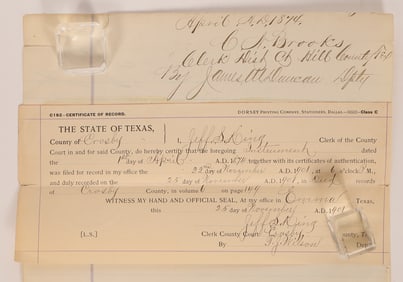 April 1st 1874.
C. N. Brooks
Clerk Dist Ct Hill County Tex
By James M Duncan Dpty
C192—CERTIFICATE OF RECORD. DORSEY Printing Company, Stationers, Dallas—Class C
THE STATE OF TEXAS,
County of Crosby I, Jeff S. King Clerk of the County
Court in and for said County, do hereby certify that the foregoing instrument dated
the 1st day of April A.D. 1874 together with its certificates of authentication,
was filed for record in my office the 22nd day of November A.D. 1901, at 6 o'clock M.,
and duly recorded on the 25 day of November A.D. 1901, in Deed records
of Crosby County, in volume 6 on page 149
WITNESS MY HAND AND OFFICIAL SEAL, At my office in Emma Texas,
this 25 day of November A.D. 1901
Jeff S. King
[L.S.] Clerk County Court Crosby County, T
By F. J. Wilson Dep